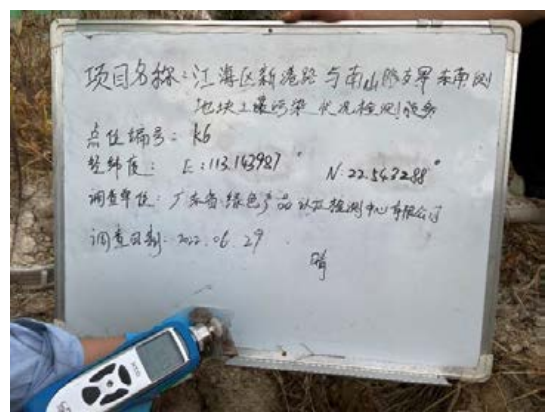 项目名称:江海区新港路与南山路交界东南侧
地块土壤污染状况检测服务
点位编号: K6
经纬度: E:113.143987° N:22.543288°
调查单位: 广东省绿色产品认证检测中心有限公司
调查日期: 2022.06.29
晴